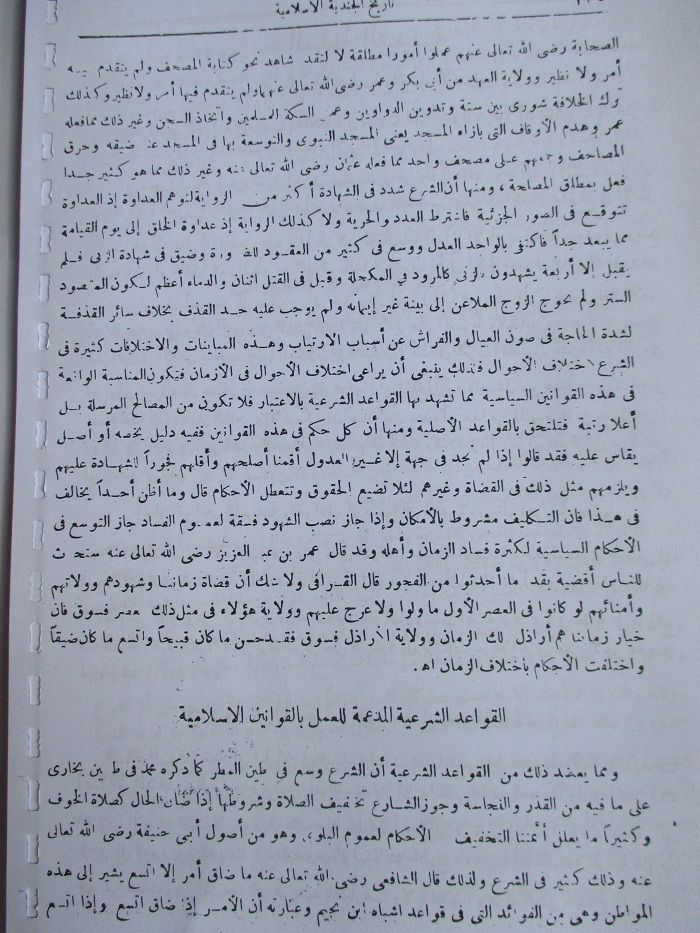 تاريخ الجندية الاسلامية
الصحابة رضى الله تعالى عنهم عملوا أمورا مطلقة لا لتقد شاهد نحو كتابة المصحف ولم يتقدم فيه
أمر ولا نظير وولاية العهد من أبى بكر وعمر رضى الله تعالى عنهما ولم يتقدم فيها أمر ولا نظير وكذلك
ترك الخلافة شورى بين ستة وتدوين الدواوين وعمل السكة للمسلمين واتخاذ السجن وغير ذلك مما فعله
عمر وهدم الأوقاف التى بازاء المسجد يعنى المسجد النبوى والتوسعة بها فى المسجد عند ضيقه وحرق
المصاحف وجمعهم على مصحف واحد مما فعله عثمان رضى الله تعالى عنه وغير ذلك مما هو كثير جدا
فعل بمطلق المصلحة ، ومنها أن الشرع شدد فى الشهادة أكثر من الرواية لتوهم العداوة إذ العداوة
تتوقع فى الصور الجزئية فاشترط العدد والحرية ولا كذلك الرواية إذ عداوة الخلق إلى يوم القيامة
مما يبعد جداً فاكتفى بالواحد العدل ووسع فى كثير من العقود للضرورة وضيق فى شهادة الزنى فلم
يقبل إلا أربعة يشهدون بالزنى كالمرود في المكحلة وقبل فى القتل اثنان والدماء أعظم لكون المقصود
الستر ولم يحوج الزوج الملاعن إلى بينة غير إيمانه ولم يوجب عليه حد القذف بخلاف سائر القذفة
لشدة الحاجة فى صون العيال والفراش عن أسباب الارتياب وهذه المباينات والاختلافات كثيرة فى
الشرع لاختلاف الأحوال فلذلك ينبغى أن يراعى اختلاف الأحوال فى الأزمان فتكون المناسبة الواقعة
فى هذه القوانين السياسية مما تشهد بها القواعد الشرعية بالاعتبار فلا تكون من المصالح المرسلة بل
أعلا رتبة فتلتحق بالقواعد الأصلية ومنها أن كل حكم فى هذه القوانين ففيه دليل يخصه أو أصل
يقاس عليه فقد قالوا إذا لم نجد فى جهة إلا غير العدول أقمنا أصلحهم وأقلهم فجوراً للشهادة عليهم
ويلزمهم مثل ذلك فى القضاة وغيرهم لئلا تضيع الحقوق وتتعطل الأحكام قال وما أظن أحداً يخالف
فى هذا فان التكليف مشروط بالأمكان وإذا جاز نصب الشهود فسقة لعموم الفساد جاز التوسع فى
الأحكام السياسية لكثرة فساد الزمان وأهله وقد قال عمر بن عبد العزيز رضى الله تعالى عنه ستحدث
للناس أقضية بقدر ما أحدثوا من الفجور قال القرافى ولا شك أن قضاة زماننا وشهودهم وولاتهم
وأمنائهم لو كانوا فى العصر الأول ما ولوا ولا عرج عليهم وولاية هؤلاء فى مثل ذلك العصر فسوق فان
خيار زماننا هم أراذل ذلك الزمان وولاية الأراذل فسوق فقد حسن ما كان قبيحاً واتسع ما كان ضيقاً
واختلفت الأحكام باختلاف الزمان اه.
القواعد الشرعية المدعمة للعمل بالقوانين الاسلامية
ومما يعضد ذلك من القواعد الشرعية أن الشرع وسع فى طين المطر كما ذكره محمد فى طين بخارى
على ما فيه من القذر والنجاسة وجوز الشارع تخفيف الصلاة وشروطها إذا ضاق الحال كصلاة الخوف
وكثيراً ما يعلل أئمتنا التخفيف الأحكام لعموم البلوى وهو من أصول أبى حنيفة رضى الله تعالى
عنه وذلك كثير فى الشرع ولذلك قال الشافعى رضى الله تعالى عنه ما ضاق أمر إلا اتسع يشير إلى هذه
المواطن وهى من الفوائد التى فى قواعد اشباه ابن نجيم وعبارته أن الأمر إذا ضاق اتسع وإذا اتسع